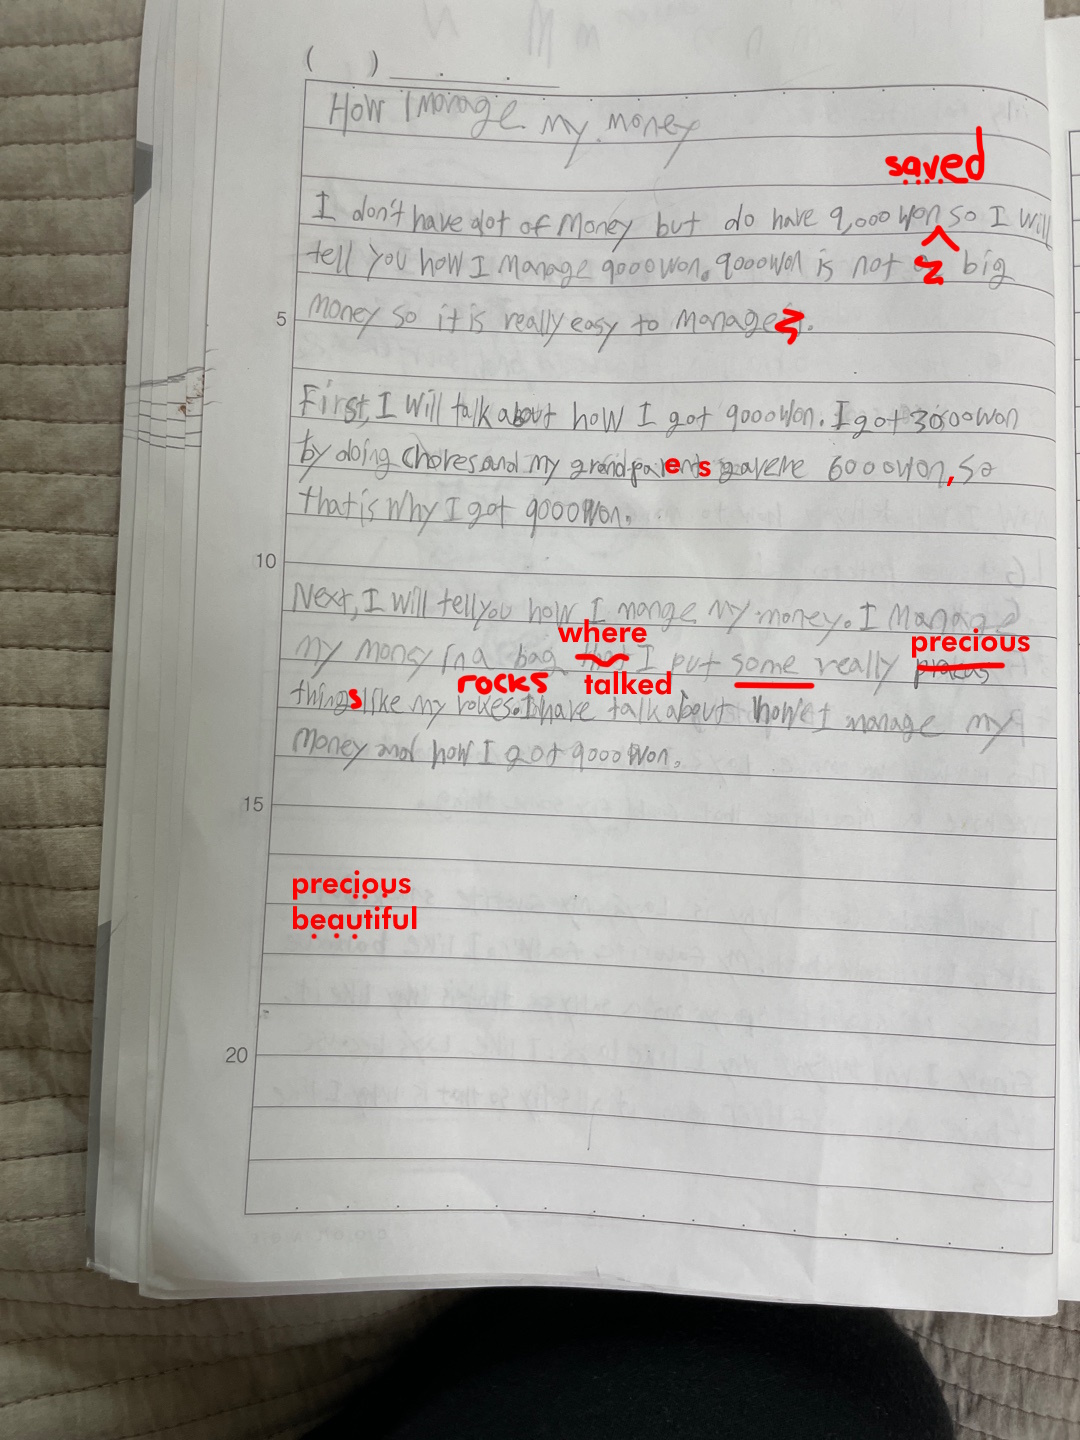 ( )
How I manage my money
saved
I don't have alot of Money but do have 9,000 won so I will
tell you how I manage 9000won. 9000won is not a big
5 money so it is really easy to manage.
First, I will talk about how I got 9000won. I got 3000won
by doing chores and my grandparents gaveme 6000won, so
that is why I got 9000won.
10
Next, I will tell you how I mange my money. I Manage
where precious
my money in a bag that I put some really
rocks talked
things like my rokes. I have talk about how I manage my
money and how I got 9000won.
15
precious
beautiful
20